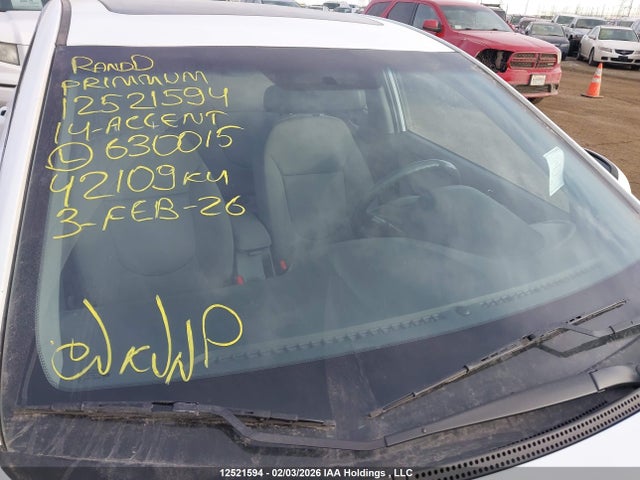 RANDD
PRIMMUM
12521594
14-ACCENT
L 630015
42109KM
3-FEB-26
12521594 - 02/03/2026 IAA Holdings , LLC